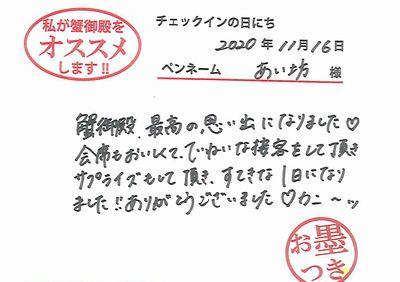 私が蟹御殿を
オススメ
します!!
チェックインの日にち
2020年11月16日
ペンネーム あい坊 様
蟹御殿、最高の思い出になりました♡
会席もおいしくて、ていねいな接客をして頂き
サプライズもして頂き、すてきな1日になり
ました!!ありがとうございました♡カニ〜ッ
お墨
つき